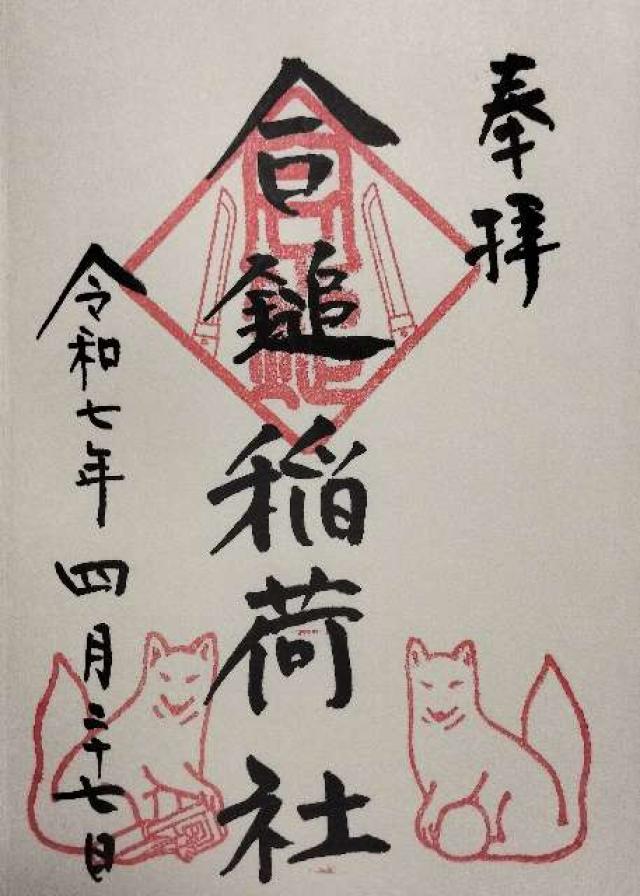 奉拝
合鎚稲荷社
令和七年四月二十七日